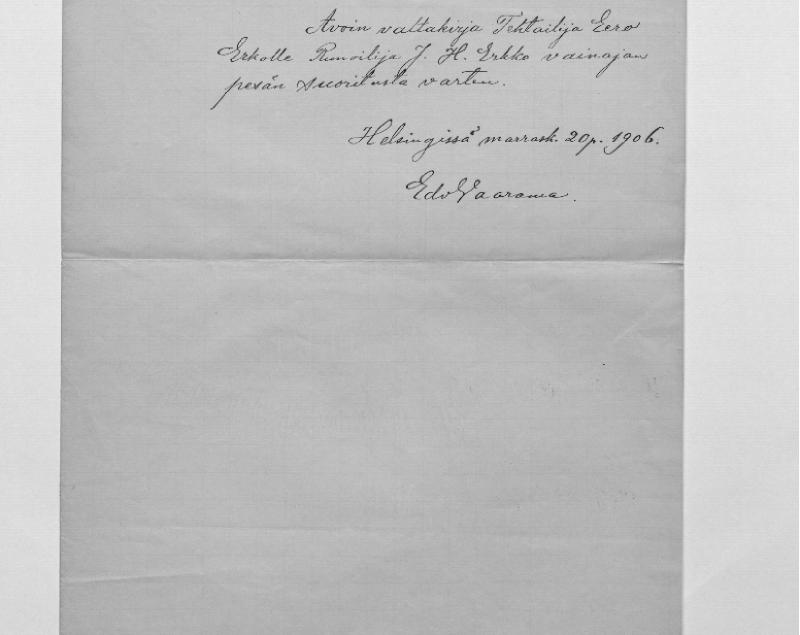 Avoin valtakirja Tehtailija Eero
Erkolle Runoilija J. H. Erkko vainajan
pesän suoritusta varten.
Helsingissä marrask. 20 p. 1906.
Edv Vaarama.